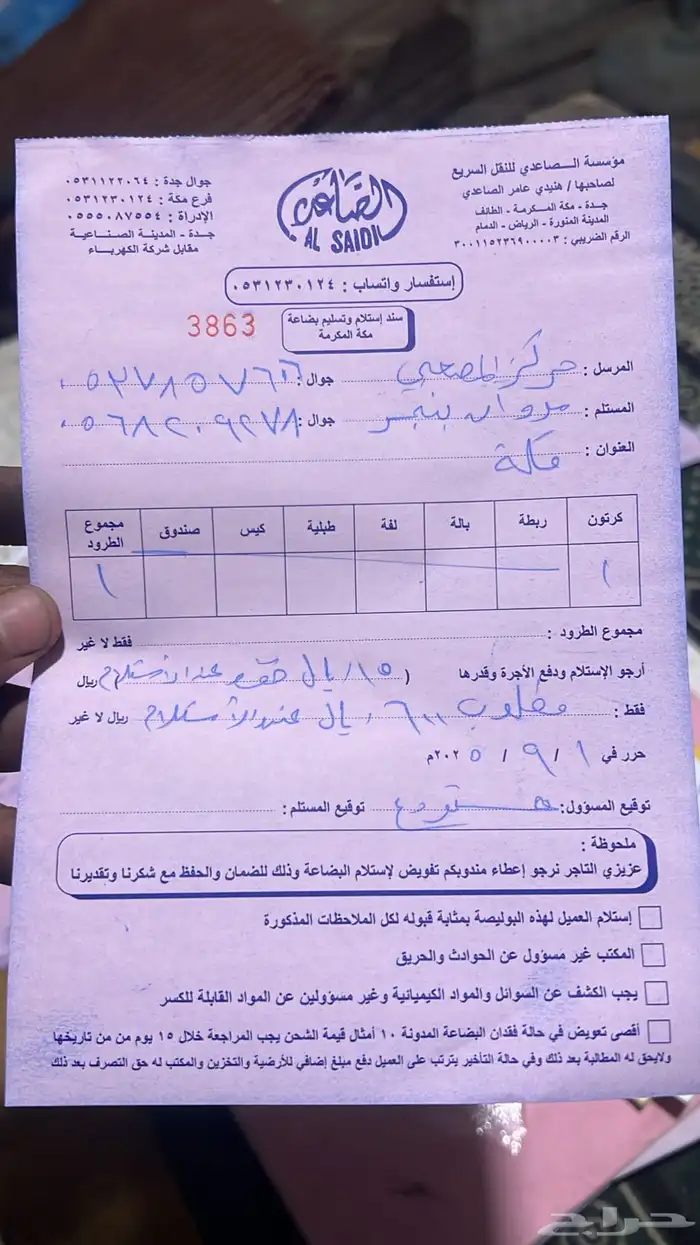 مؤسسة الـصاعدي للنقل السريع
لصاحبها / هنيدي عامر الصاعدي
جدة - مكة المـكـرمـة - الطائف
المدينة المنورة - الرياض - الدمام
الرقم الضريبي : ٣٠٠١١٥٢٣٦٩٠٠٠٠٣
الصاعدي
AL SAIDI
جوال جدة : ٠٥٣١١٢٢٠٦٤
فرع مكة : ٠٥٣١٢٣٠١٢٤
الإدراة : ٠٥٥٥٠٨٧٥٥٤
جدة - المدينة الصناعية
مقابل شركة الكهرباء
إستفسار واتساب : ٠٥٣١٢٣٠١٢٤
سند إستلام وتسليم بضاعة
مكة المكرمة
3863
المرسل : مركز جوال :
المستلم : مروان جوال : ٠٥٦٨٢٠٩٢٧٨
العنوان : مكة
كرتون ربطة بالة لفة طبلية كيس صندوق مجموع الطرود
١ ١
مجموع الطرود : فقط لا غير
أرجو الإستلام ودفع الأجرة وقدرها ( ١٥ ريال عند الأستلام ريال
فقط : مطلوب ٦٠٠ ريال عند الأستلام ريال لا غير
حرر في ١ / ٩ / ٢٠٢٥م
توقيع المسؤول: توقيع المستلم :
ملحوظة :
عزيزي التاجر نرجو إعطاء مندوبكم تفويض لإستلام البضاعة وذلك للضمان والحفظ مع شكرنا وتقديرنا
إستلام العميل لهذه البوليصة بمثابة قبوله لكل الملاحظات المذكورة
المكتب غير مسؤول عن الحوادث والحريق
يجب الكشف عن السوائل والمواد الكيميائية وغير مسؤولين عن المواد القابلة للكسر
أقصى تعويض في حالة فقدان البضاعة المدونة ١٠ أمثال قيمة الشحن يجب المراجعة خلال ١٥ يوم من من تاريخها
ولايحق له المطالبة بعد ذلك وفي حالة التأخير يترتب على العميل دفع مبلغ إضافي للأرضية والتخزين والمكتب له حق التصرف بعد ذلك
حراج